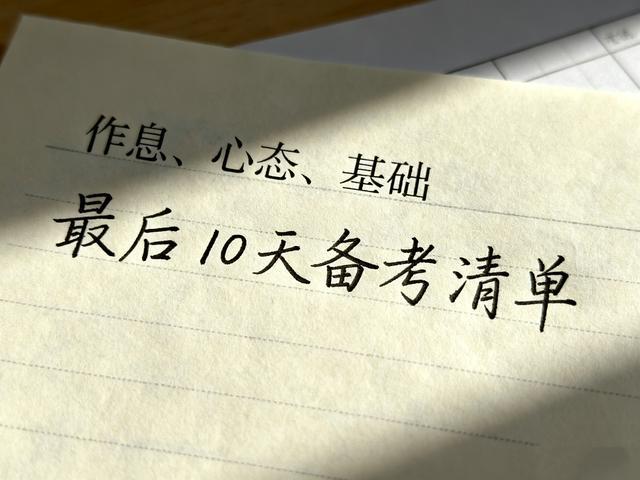 作息、心态、基础
最后10天备考清单